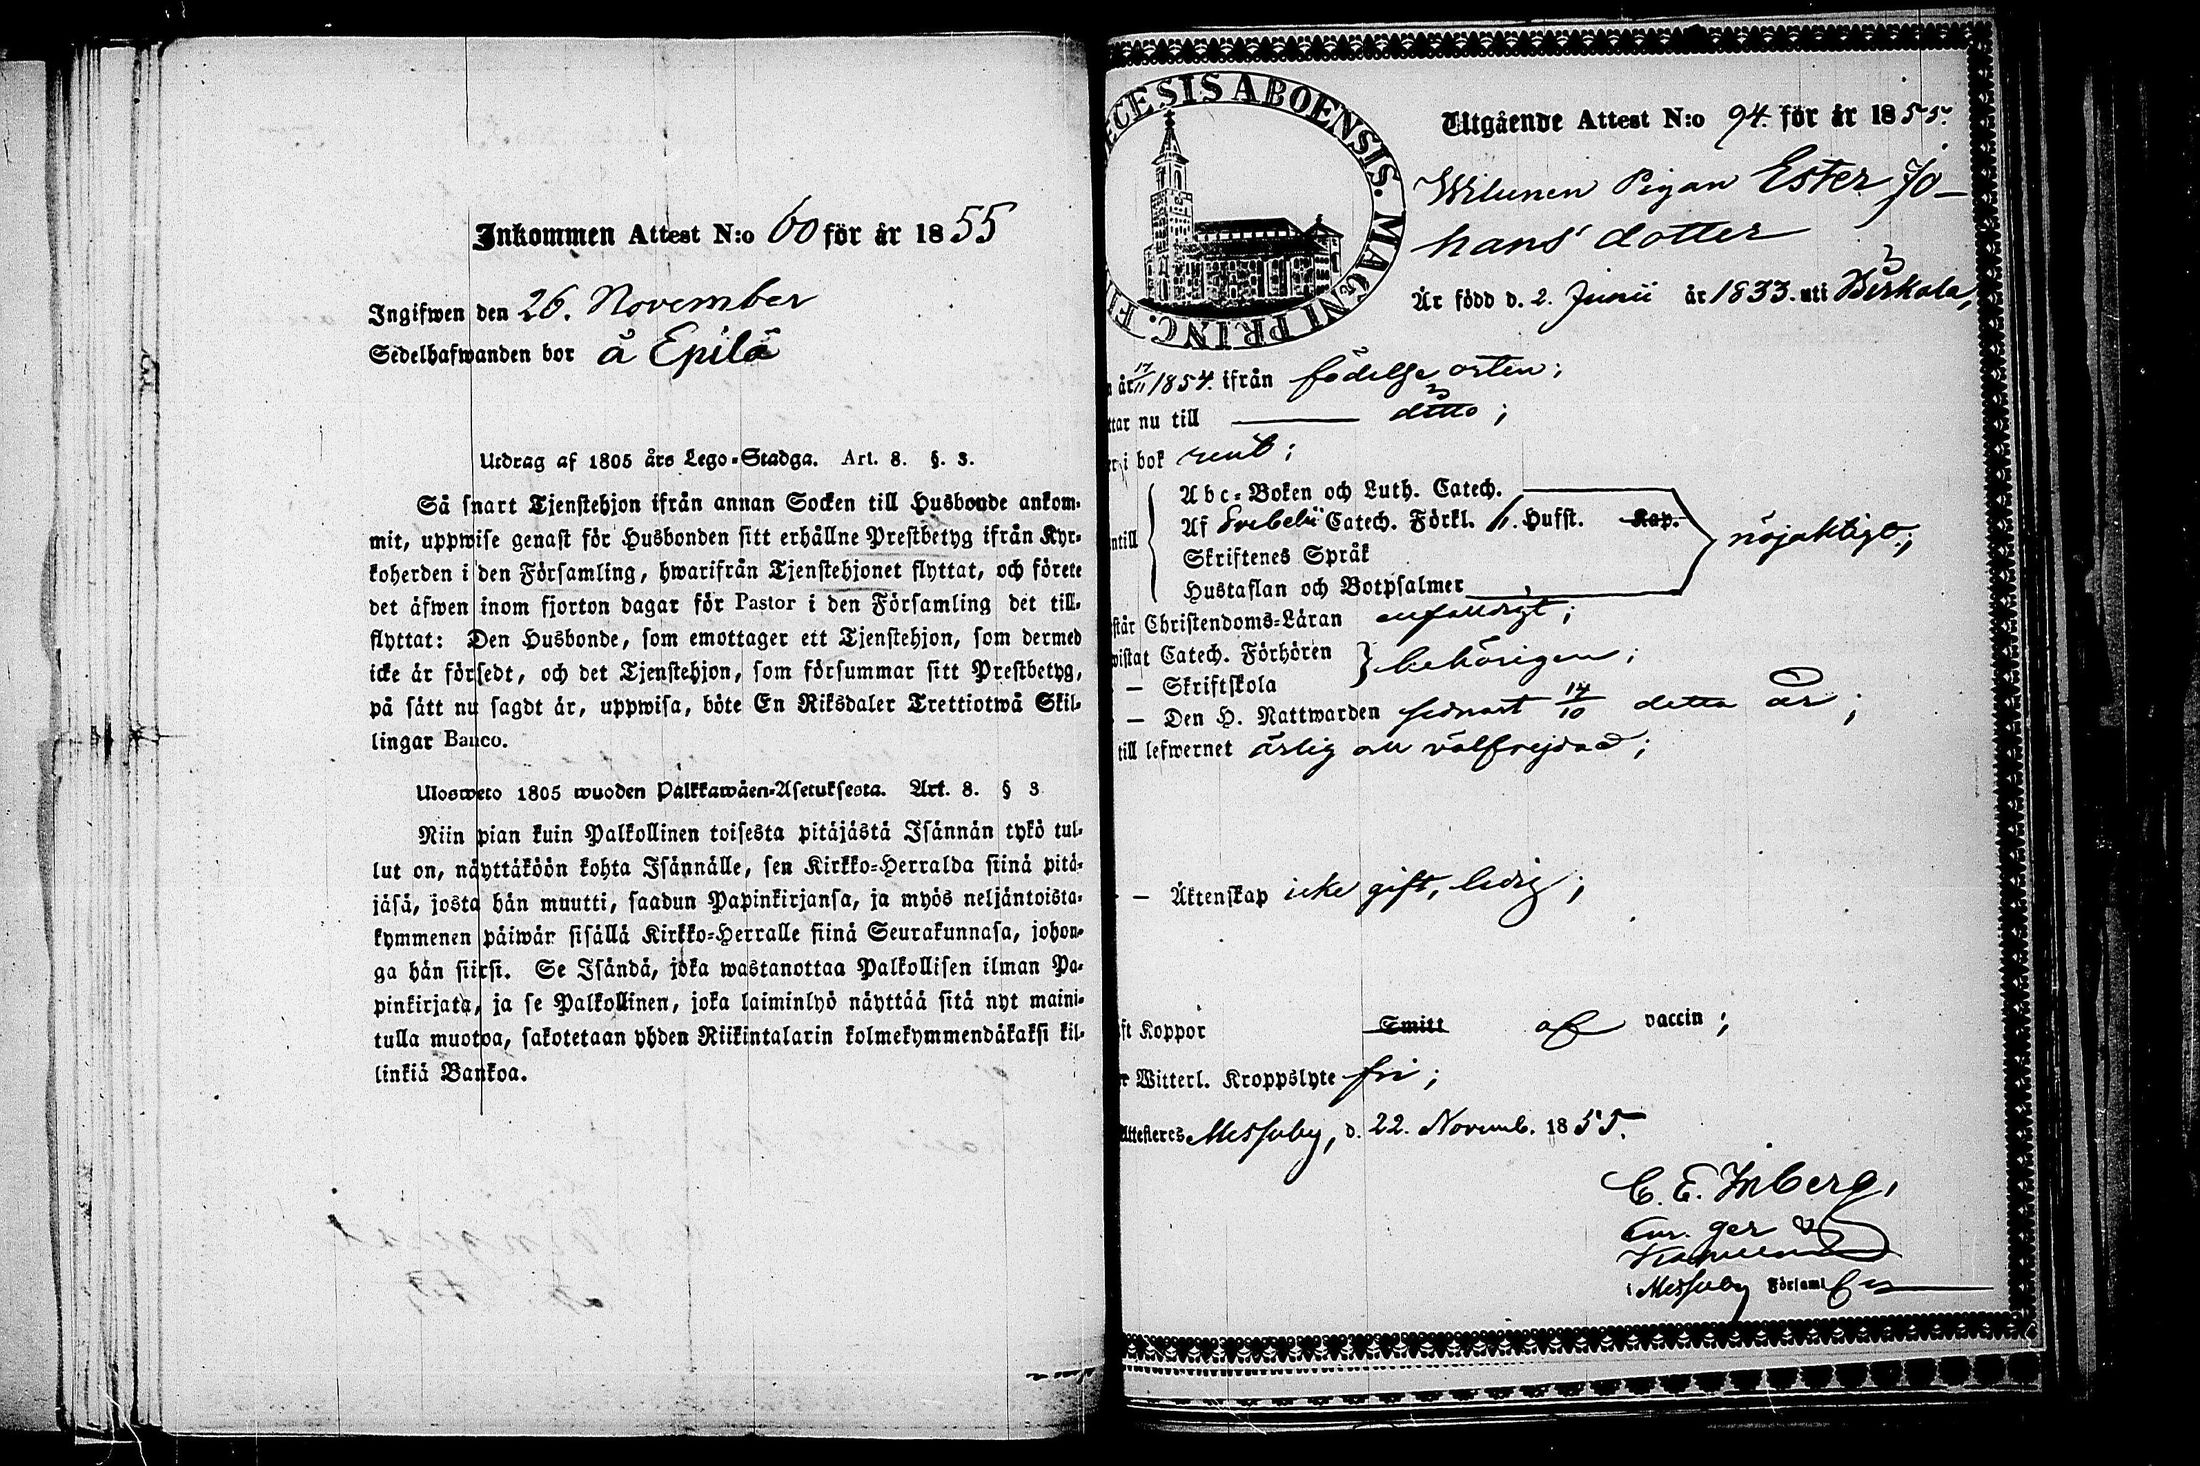 Inkommen Attest N:o 60 för år 1855
Ingifwen den 26. November
Sedelhafwanden bor å Epilä
Utdrag af 1805 års Lego-Stadga. Art. 8. §. 3.
Så snart Tjenstehjon ifrån annan Socken till Husbonde ankom-
mit, uppwise genast för Husbonden sitt erhållne Prestbetyg ifrån Kyr-
koherden i den Församling, hwarifrån Tjenstehjonet flyttat, och förete
det äfwen inom fjorton dagar för Pastor i den Församling det till-
flyttat: Den Husbonde, som emottager ett Tjenstehjon, som dermed
icke är försedt, och det Tjenstehjon, som försummar sitt Prestbetyg,
på sätt nu sagdt är, uppwisa, böte En Riksdaler Trettiotwå Skil-
lingar Banco.
Ulosweto 1805 wuoden Palkkawäen-Asetuksesta. Art. 8. § 3
Niin pian kuin Palkollinen toisesta pitäjästä Isännän tykö tul-
lut on, näyttäköön kohta Isännälle, sen Kirkko-Herralda siinä pitä-
jäsä, josta hän muutti, saadun Papinkirjansa, ja myös neljäntoista-
kymmenen päiwän sisällä Kirkko-Herralle siinä Seurakunnasa, johon-
ga hän siirsi. Se Isändä, joka wastanottaa Palkollisen ilman Pa-
pinkirjata, ja se Palkollinen, joka laiminlyö näyttää sitä nyt maini-
tulla muotoa, sakotetaan yhden Riikintalarin kolmekymmendäkaksi kil-
linkiä Bankoa.
ECESIS ABOENSIS. MAGNI PRINC. FI
Utgående Attest N:o 94. för år 1855.
Wilunen Pigan Ester Jo-
hans dotter
Är född d. 2. Junii år 1833. uti Birkala,
år 17/11 1854. ifrån födelse orten;
ttar nu till ditto;
er i bok rent;
Abc-Boken och Luth. Catech.
Af Svebelii Catech. Förkl. Hufst. Kap.
ntill nöjaktigt;
Skriftenes Språk
Hustaflan och Botpsalmer
står Christendoms-Läran enfaldigt;
wistat Catech. Förhören } behörigen;
— Skriftskola
— Den H. Nattwarden sednast 14/10 detta år;
till lefwernet ärlig och välfrejdad;
— Äktenskap icke gift, ledig;
ft Koppor Smitt af vaccin;
Witterl. Kroppslyte fri;
Attesteres Messuby, d. 22. Novemb. 1855.
C. E. Inberg,
i Messuby Församl